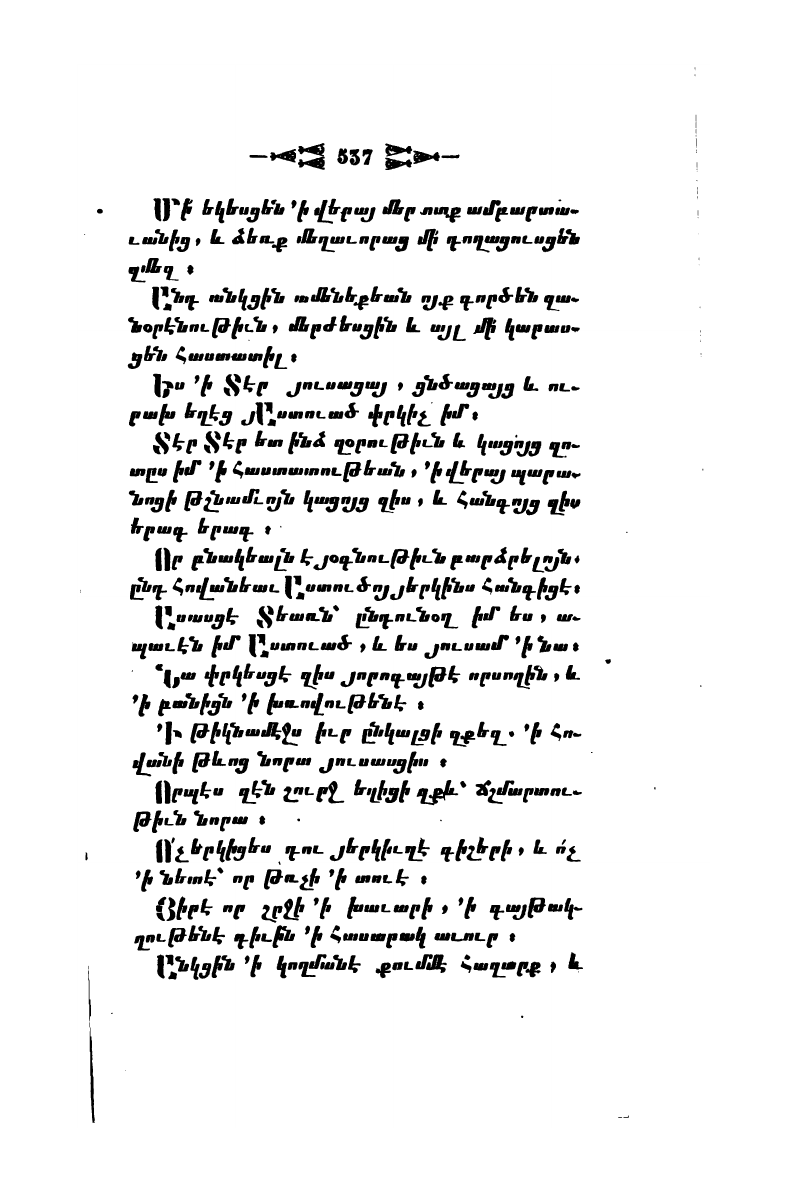 537
Մի՛ եկեսցեն ՚ի վերայ մեր ոտք ամբարտա-
ւանից, և ձեռք մեղաւորաց մի գողացուսցեն
զմեզ ։
Անդ անկցին ամենեքեան ոյք գործեն զա-
նօրէնութիւն, մերժեսցին և այլ մի կարաս-
ցեն հաստատիլ։
Ես ՚ի Տէր յուսացայ, ցնծացայց և ու-
րախ եղէց յԱստուած փրկիչ իմ։
Տէր Տէր ետ ինձ զօրութիւն և կացոյց զո-
տըս իմ ՚ի հաստատութեան, ՚ի վերայ պարա-
նոցի թշնամւոյն կացոյց զիս, և հանգոյց զիս
երագ երագ ։
Որ բնակեալն է յօգնութիւն բարձրելոյն,
ընդ հովանեաւ Աստուծոյ յերկինս հանգիցէ։
Ասասցէ Տեառն՝ ընդունօղ իմ ես, ա-
պաւէն իմ Աստուած, և ես յուսամ ՚ի նա։
Նա փրկեսցէ զիս յորոգայթէ որսողին, և
՚ի բանիցն ՚ի խռովութենէ ։
՚Ի թիկնամէջս իւր ընկալցի զքեզ. ՚ի հո-
վանի թևոց նորա յուսասցիս ։
Որպէս զէն շուրջ եղիցի զքև՝ ճշմարտու-
թիւն նորա ։
Ո՛չ երկիցես դու յերկիւղէ գիշերի, և ո՛չ
՚ի նետէ՝ որ թռչի ՚ի տուէ ։
Զիրէ որ շրջի ՚ի խաւարի, ՚ի գայթակ-
ղութենէ գիւին ՚ի հասարակ աւուր ։
Անկցին ՚ի կողմանէ քումմէ հազարք, և